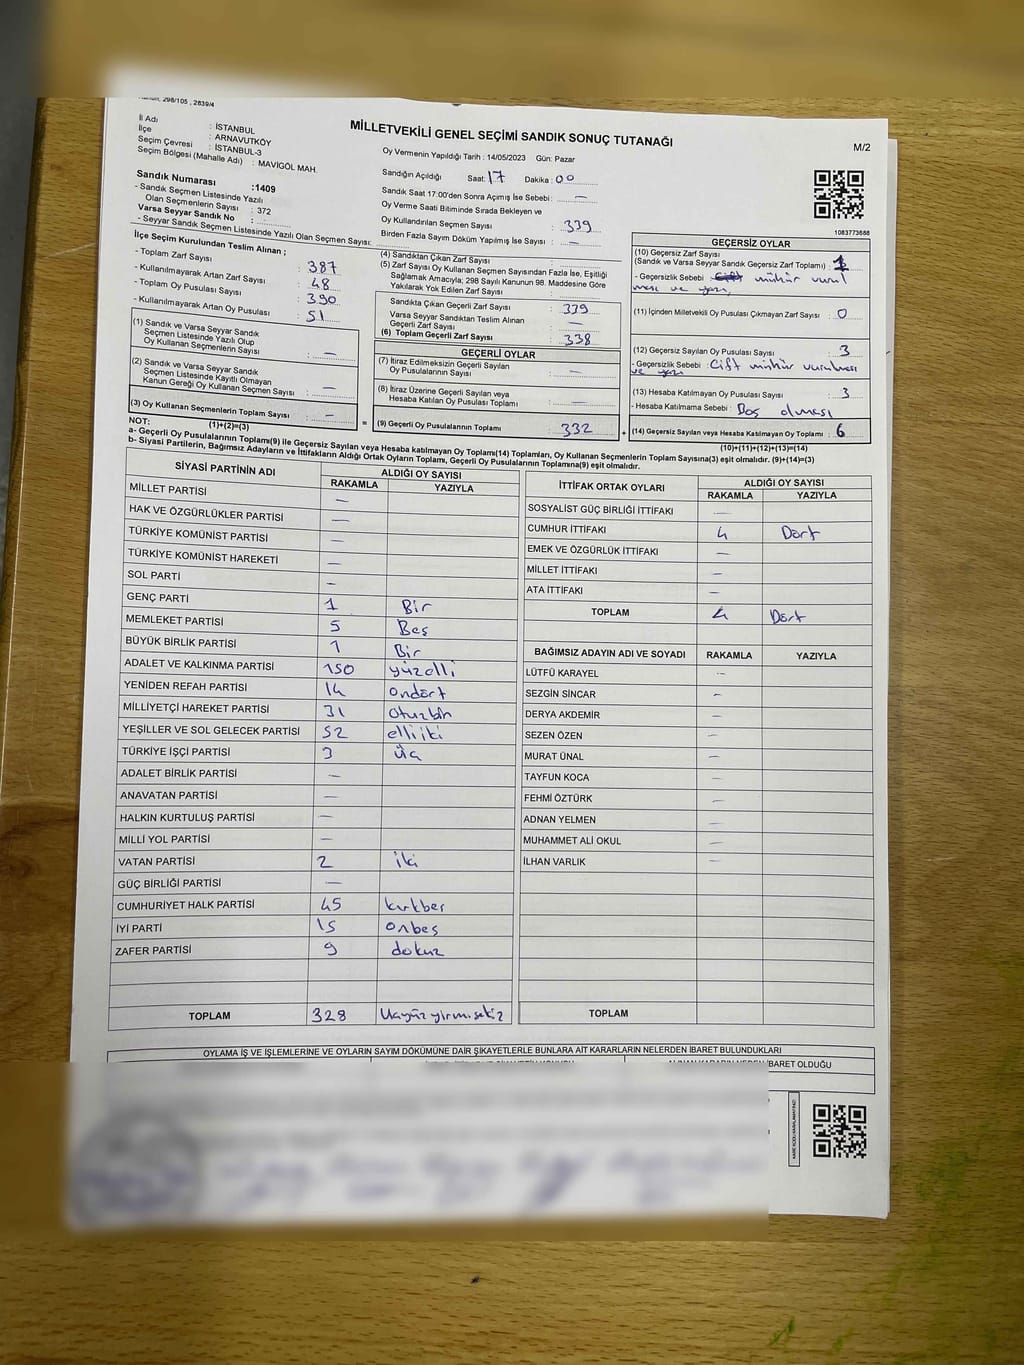 298/105 , 2839/4
MİLLETVEKİLİ GENEL SEÇİMİ SANDIK SONUÇ TUTANAĞI
M/2
İl Adı : İSTANBUL
İlçe : ARNAVUTKÖY
Seçim Çevresi : İSTANBUL-3
Seçim Bölgesi (Mahalle Adı) : MAVİGÖL MAH.
Sandık Numarası :1409
- Sandık Seçmen Listesinde Yazılı
Olan Seçmenlerin Sayısı : 372
Varsa Seyyar Sandık No :
- Seyyar Sandık Seçmen Listesinde Yazılı Olan Seçmen Sayısı:
Oy Vermenin Yapıldığı Tarih : 14/05/2023 Gün: Pazar
Sandığın Açıldığı Saat: 17 Dakika : 00
Sandık Saat 17:00'den Sonra Açımış İse Sebebi : —
Oy Verme Saati Bitiminde Sırada Bekleyen ve
Oy Kullandırılan Seçmen Sayısı : 339
Birden Fazla Sayım Döküm Yapılmış İse Sayısı : —
1083773688
İlçe Seçim Kurulundan Teslim Alınan ;
- Toplam Zarf Sayısı : 387
- Kullanılmayarak Artan Zarf Sayısı : 48
- Toplam Oy Pusulası Sayısı : 390
- Kullanılmayarak Artan Oy Pusulası : 51
(1) Sandık ve Varsa Seyyar Sandık
Seçmen Listesinde Yazılı Olup
Oy Kullanan Seçmenlerin Sayısı : —
(2) Sandık ve Varsa Seyyar Sandık
Seçmen Listesinde Kayıtlı Olmayan
Kanun Gereği Oy Kullanan Seçmen Sayısı : —
(3) Oy Kullanan Seçmenlerin Toplam Sayısı : —
(1)+(2)=(3)
(4) Sandıktan Çıkan Zarf Sayısı :
(5) Zarf Sayısı Oy Kullanan Seçmen Sayısından Fazla İse, Eşitliği
Sağlamak Amacıyla; 298 Sayılı Kanunun 98. Maddesine Göre
Yakılarak Yok Edilen Zarf Sayısı :
Sandıkta Çıkan Geçerli Zarf Sayısı : 339
Varsa Seyyar Sandıktan Teslim Alınan
Geçerli Zarf Sayısı : —
(6) Toplam Geçerli Zarf Sayısı : 338
GEÇERLİ OYLAR
(7) İtiraz Edilmeksizin Geçerli Sayılan
Oy Pusulalarının Sayısı : —
(8) İtiraz Üzerine Geçerli Sayılan veya
Hesaba Katılan Oy Pusulası Toplamı : —
= (9) Geçerli Oy Pusulalarının Toplamı : 332 +
GEÇERSİZ OYLAR
(10) Geçersiz Zarf Sayısı
(Sandık ve Varsa Seyyar Sandık Geçersiz Zarf Toplamı) : 1
- Geçersizlik Sebebi : Çift mühür vurul
ması ve yazı
(11) İçinden Milletvekili Oy Pusulası Çıkmayan Zarf Sayısı : 0
(12) Geçersiz Sayılan Oy Pusulası Sayısı : 3
- Geçersizlik Sebebi : Çift mühür vurulması
ve yazı
(13) Hesaba Katılmayan Oy Pusulası Sayısı : 3
- Hesaba Katılmama Sebebi : Boş olması
(14) Geçersiz Sayılan veya Hesaba Katılmayan Oy Toplamı : 6
(10)+(11)+(12)+(13)=(14)
NOT:
a- Geçerli Oy Pusulalarının Toplamı(9) ile Geçersiz Sayılan veya Hesaba Katılmayan Oy Toplamı(14) Toplamları, Oy Kullanan Seçmenlerin Toplam Sayısına(3) eşit olmalıdır. (9)+(14)=(3)
b- Siyasi Partilerin, Bağımsız Adayların ve İttifakların Aldığı Ortak Oyların Toplamı, Geçerli Oy Pusulalarının Toplamına(9) eşit olmalıdır.
SİYASİ PARTİNİN ADI ALDIĞI OY SAYISI
RAKAMLA YAZIYLA
MİLLET PARTİSİ —
HAK VE ÖZGÜRLÜKLER PARTİSİ —
TÜRKİYE KOMÜNİST PARTİSİ —
TÜRKİYE KOMÜNİST HAREKETİ —
SOL PARTİ —
GENÇ PARTİ 1 Bir
MEMLEKET PARTİSİ 5 Beş
BÜYÜK BİRLİK PARTİSİ 1 Bir
ADALET VE KALKINMA PARTİSİ 150 yüzelli
YENİDEN REFAH PARTİSİ 14 ondört
MİLLİYETÇİ HAREKET PARTİSİ 31 otuzbir
YEŞİLLER VE SOL GELECEK PARTİSİ 52 elliiki
TÜRKİYE İŞÇİ PARTİSİ 3 üç
ADALET BİRLİK PARTİSİ —
ANAVATAN PARTİSİ —
HALKIN KURTULUŞ PARTİSİ —
MİLLİ YOL PARTİSİ —
VATAN PARTİSİ 2 iki
GÜÇ BİRLİĞİ PARTİSİ —
CUMHURİYET HALK PARTİSİ 45 kırkbeş
İYİ PARTİ 15 onbeş
ZAFER PARTİSİ 9 dokuz
TOPLAM 328 Üçyüzyirmisekiz
İTTİFAK ORTAK OYLARI ALDIĞI OY SAYISI
RAKAMLA YAZIYLA
SOSYALİST GÜÇ BİRLİĞİ İTTİFAKI —
CUMHUR İTTİFAKI 4 Dört
EMEK VE ÖZGÜRLÜK İTTİFAKI —
MİLLET İTTİFAKI —
ATA İTTİFAKI —
TOPLAM 4 Dört
BAĞIMSIZ ADAYIN ADI VE SOYADI RAKAMLA YAZIYLA
LÜTFÜ KARAYEL —
SEZGİN SİNCAR —
DERYA AKDEMİR —
SEZEN ÖZEN —
MURAT ÜNAL —
TAYFUN KOCA —
FEHMİ ÖZTÜRK —
ADNAN YELMEN —
MUHAMMET ALİ OKUL —
İLHAN VARLIK —
TOPLAM
OYLAMA İŞ VE İŞLEMLERİNE VE OYLARIN SAYIM DÖKÜMÜNE DAİR ŞİKAYETLERLE BUNLARA AİT KARARLARIN NELERDEN İBARET BULUNDUKLARI
İBARET OLDUĞU